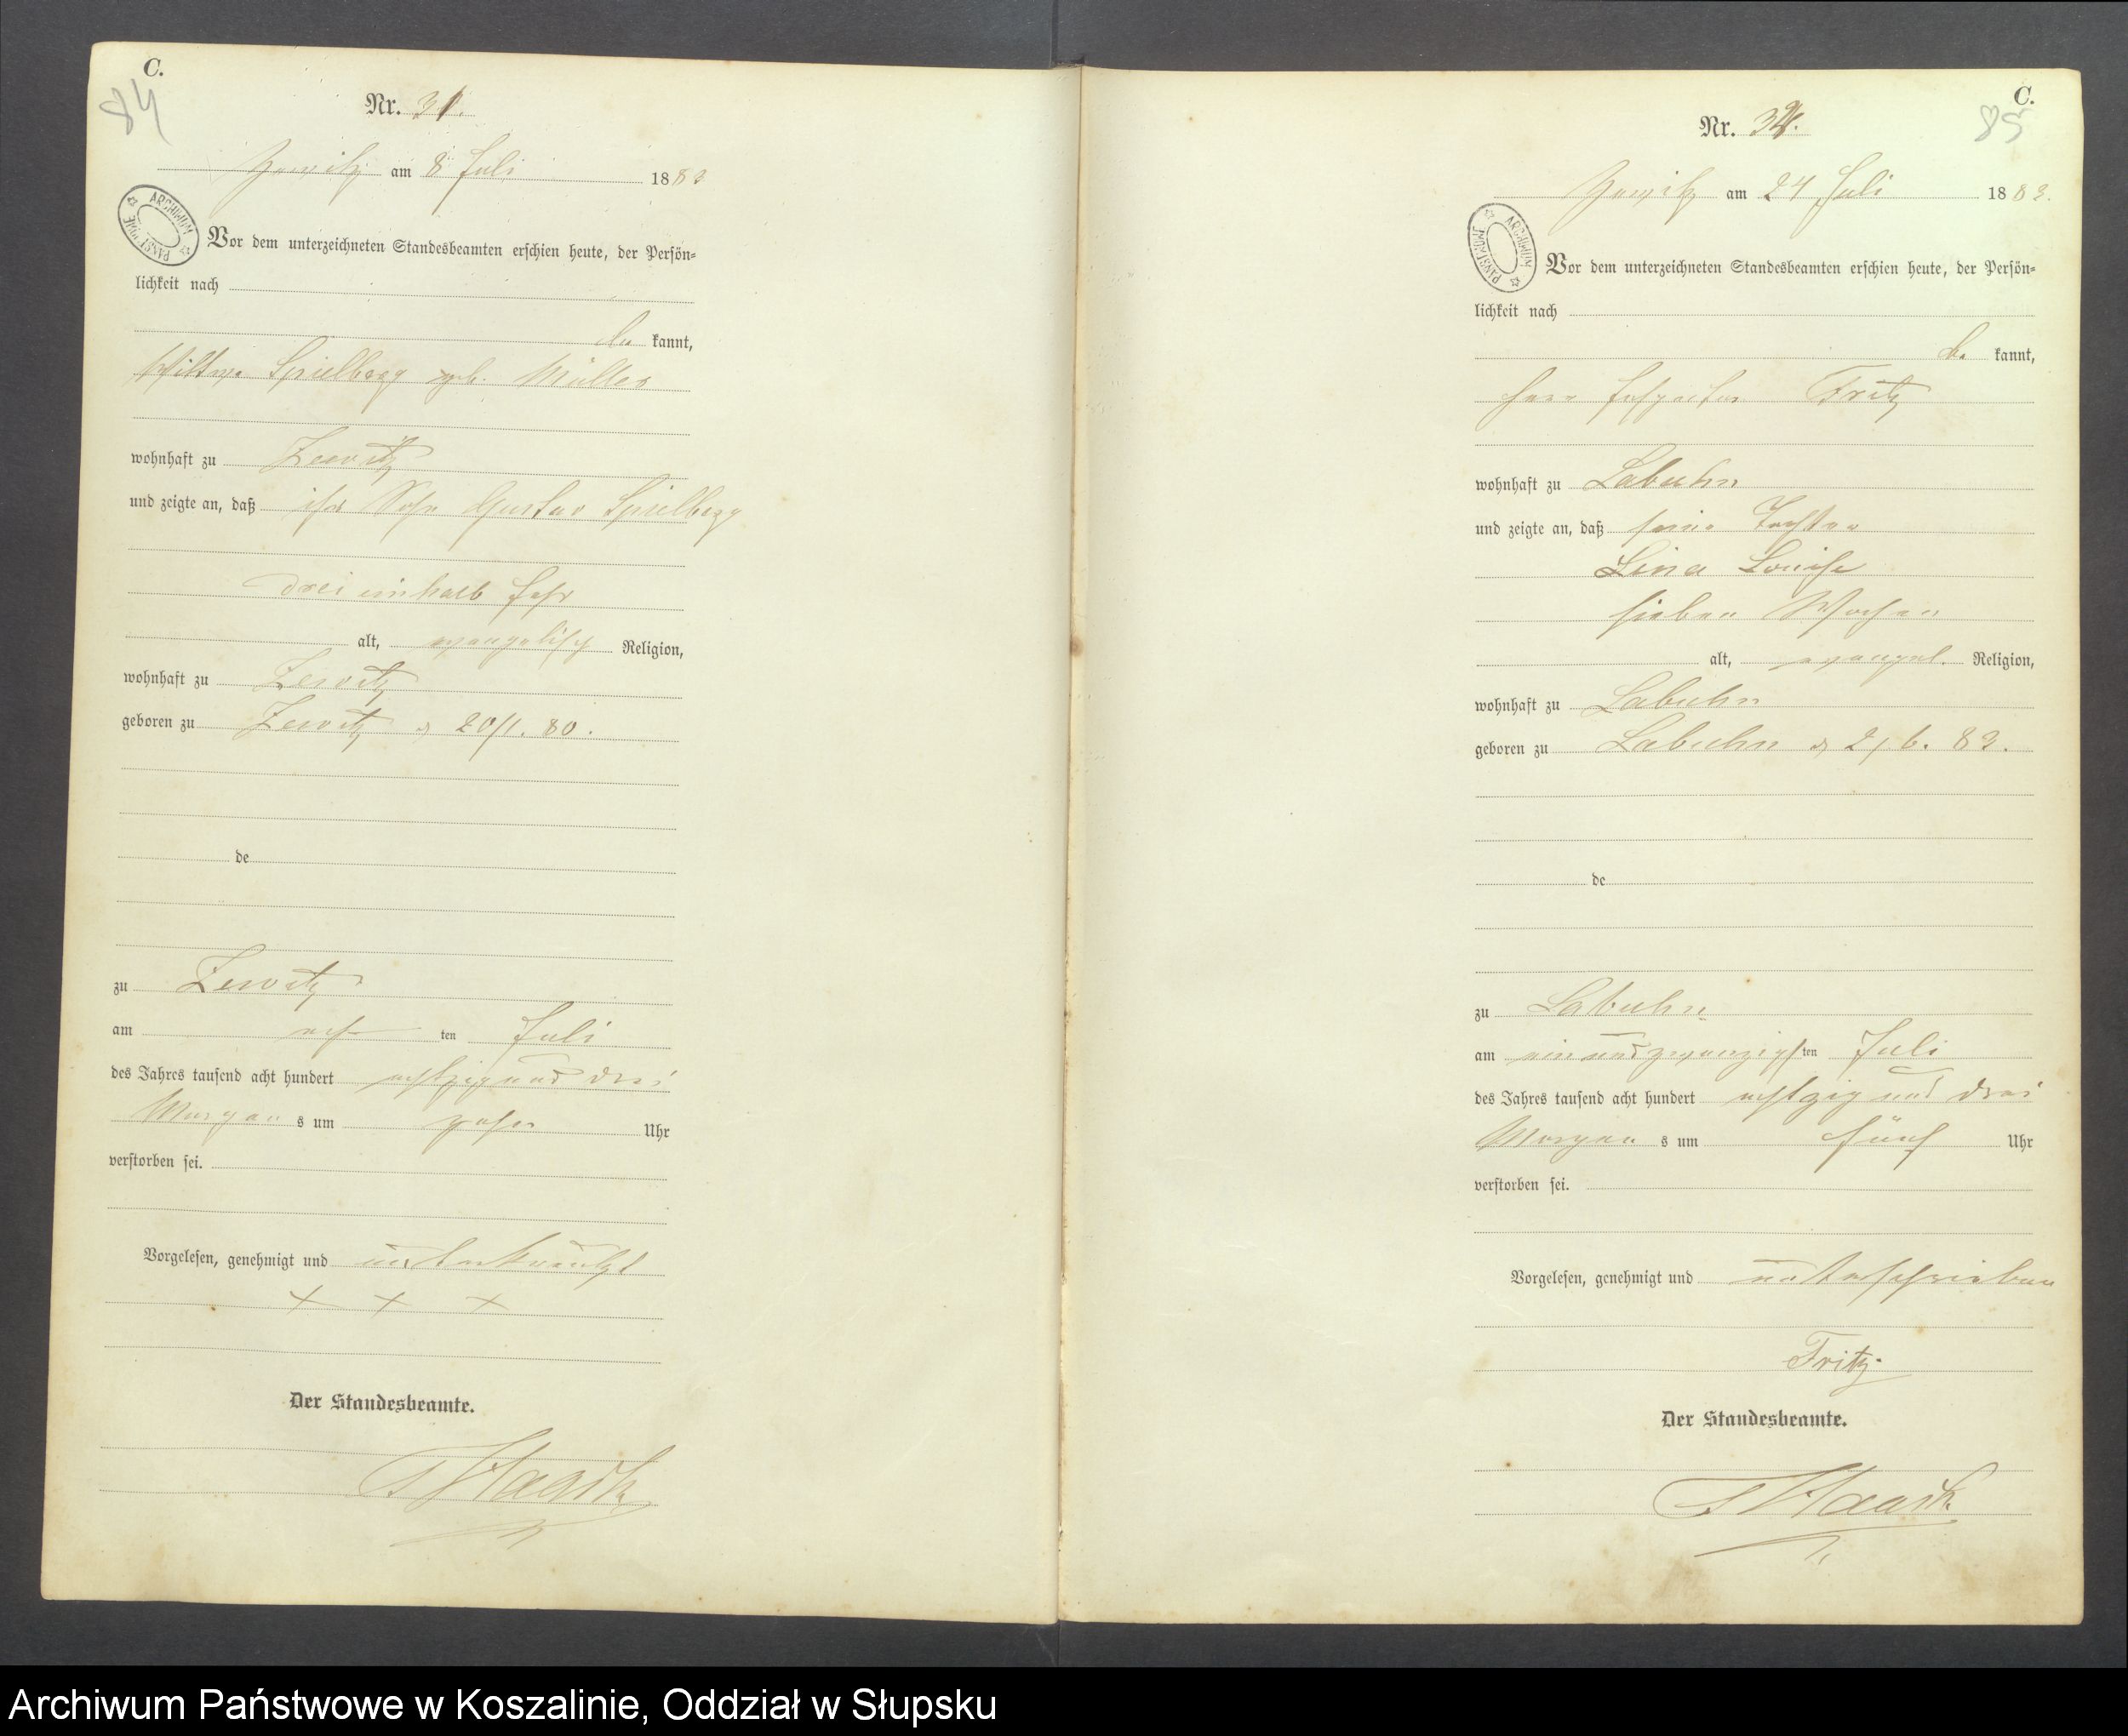 C.
84
Nr. 31.
Zewitz am 8 Juli 1883
ARCHIWUM PAŃSTWOWE
Vor dem unterzeichneten Standesbeamten erschien heute, der Persön-
lichkeit nach
be kannt,
Wittwe Spielberg geb. Müller
wohnhaft zu Zewitz
und zeigte an, daß ihr Sohn Gustav Spielberg
drei einhalb Jahr
alt, evangelisch Religion,
wohnhaft zu Zewitz
geboren zu Zewitz d 20/1. 80.
de
zu Zewitz
am ach ten Juli
des Jahres tausend acht hundert achtzig und drei
Morgen s um Uhr
verstorben sei.
Vorgelesen, genehmigt und unterkreuzt
+ + +
Der Standesbeamte.
C.
85
Nr. 32.
Zewitz am 24 Juli 1883.
ARCHIWUM PAŃSTWOWE
Vor dem unterzeichneten Standesbeamten erschien heute, der Persön-
lichkeit nach
be kannt,
Herr Inspector Fritz
wohnhaft zu Labuhn
und zeigte an, daß seine Tochter
Lina Louise
sieben Wochen
alt, evangel. Religion,
wohnhaft zu Labuhn
geboren zu Labuhn d 2/6. 83.
de
zu Labuhn
am ein und zwanzigsten Juli
des Jahres tausend acht hundert achtzig und drei
Morgen s um fünf Uhr
verstorben sei.
Vorgelesen, genehmigt und unterschrieben
Fritz.
Der Standesbeamte.
Archiwum Państwowe w Koszalinie, Oddział w Słupsku